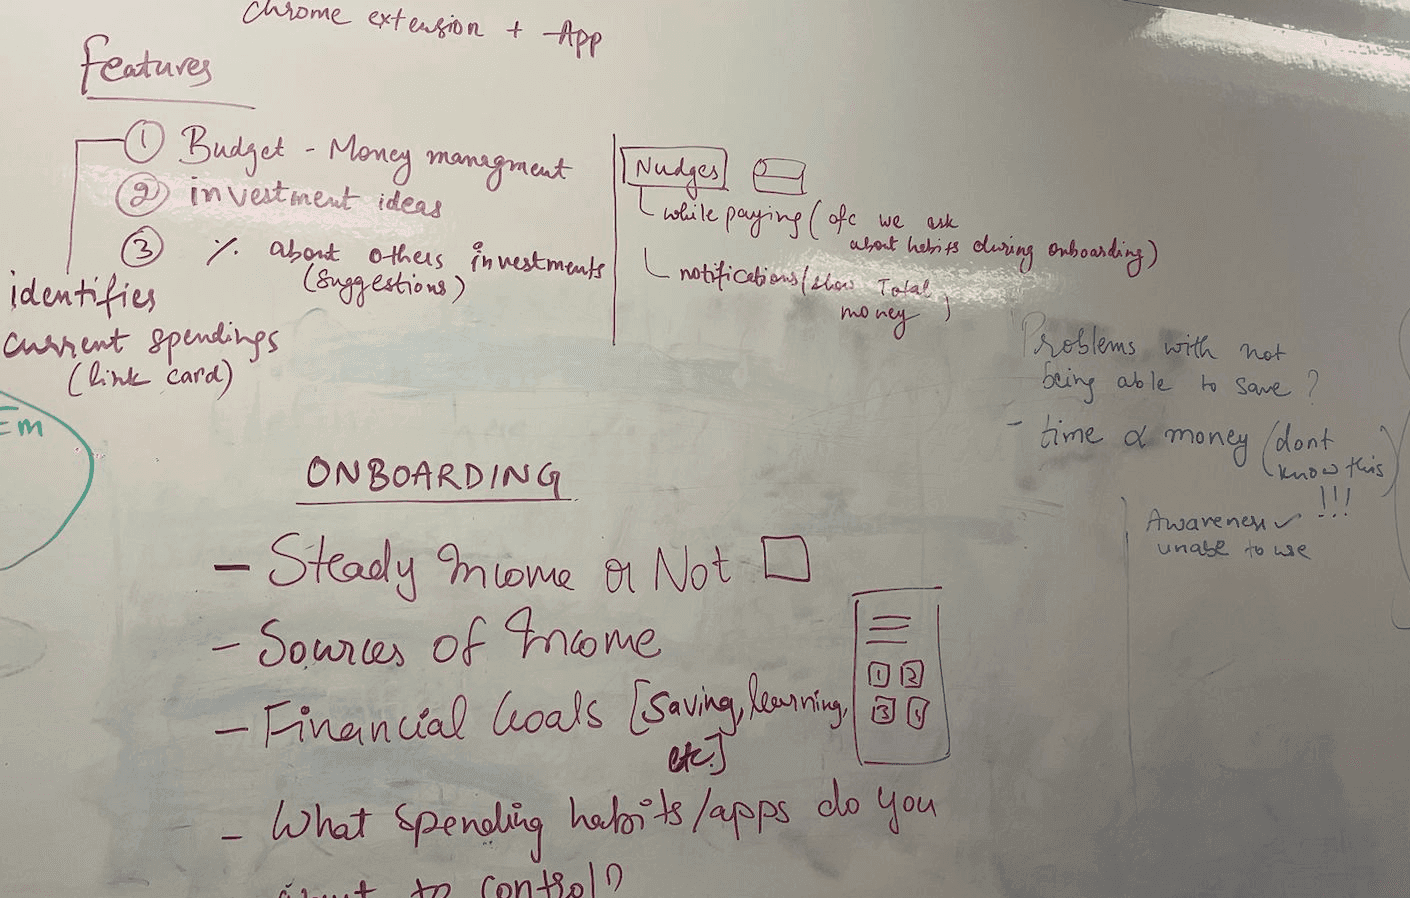 Chrome extension + App
Features
① Budget - Money managment
② investment ideas
③ % about others investments
(Suggestions)
identifies
current spendings
(link card)
Nudges
while paying (ofc we ask
about habits during onboarding)
notifications (show Total
money)
Problems with not
being able to save?
- time ∝ money (dont
know this
!!!)
Awareness ✓
unable to use
Em
ONBOARDING
- Steady Income or Not
- Sources of Income
- Financial Goals [Saving, learning,
etc.]
1 2
3 4
- What spending habits/apps do you
to control?